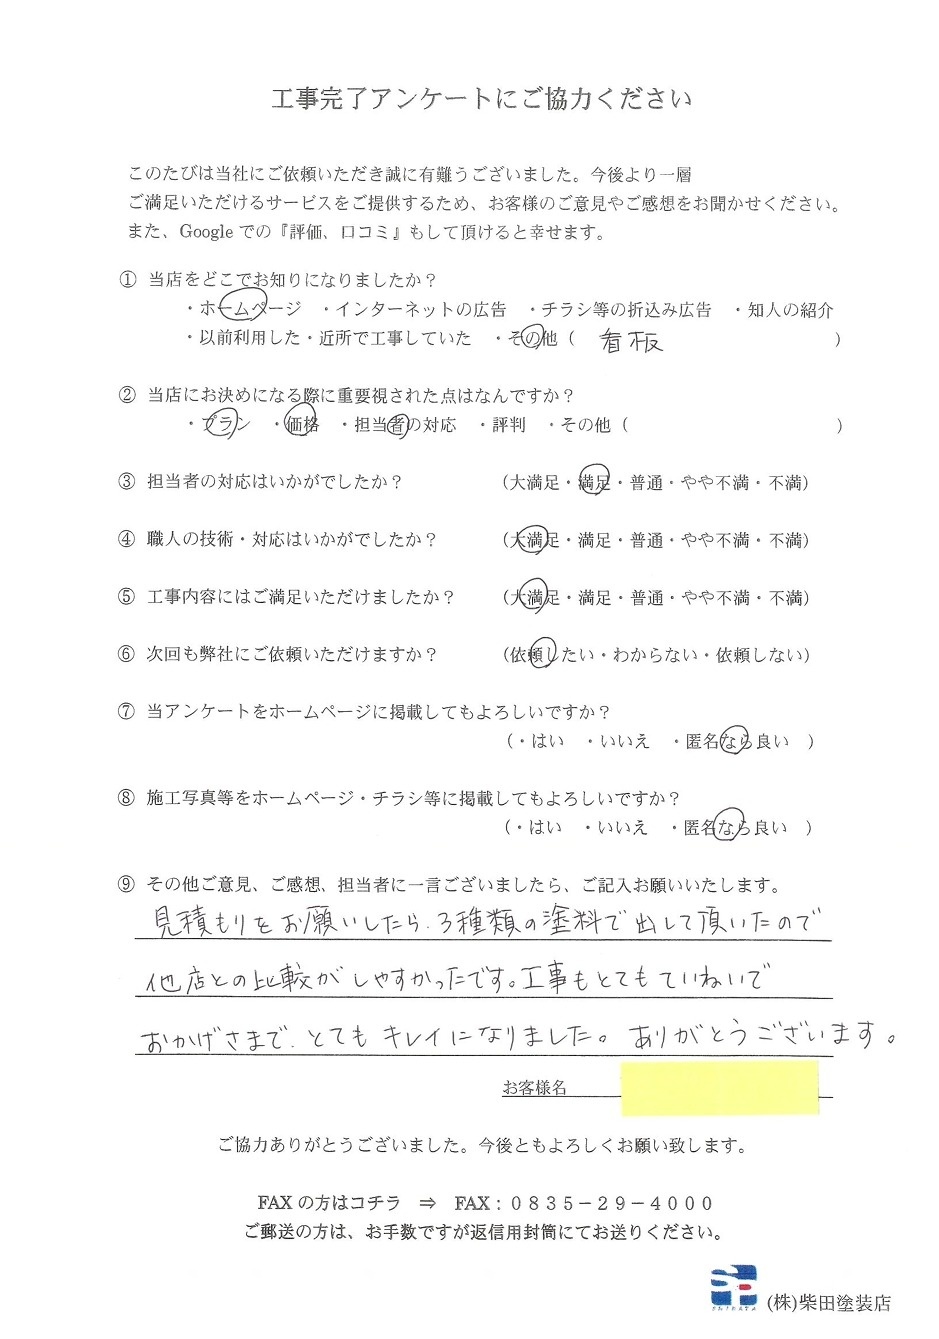 工事完了アンケートにご協力ください
このたびは当社にご依頼いただき誠に有難うございました。今後より一層
ご満足いただけるサービスをご提供するため、お客様のご意見やご感想をお聞かせください。
また、Google での『評価、口コミ』もして頂けると幸せます。
① 当店をどこでお知りになりましたか？
・ホームページ ・インターネットの広告 ・チラシ等の折込み広告 ・知人の紹介
・以前利用した・近所で工事していた ・その他（ 看板 ）
② 当店にお決めになる際に重要視された点はなんですか？
・プラン ・価格 ・担当者の対応 ・評判 ・その他（ ）
③ 担当者の対応はいかがでしたか？ （大満足・満足・普通・やや不満・不満）
④ 職人の技術・対応はいかがでしたか？ （大満足・満足・普通・やや不満・不満）
⑤ 工事内容にはご満足いただけましたか？ （大満足・満足・普通・やや不満・不満）
⑥ 次回も弊社にご依頼いただけますか？ （依頼したい・わからない・依頼しない）
⑦ 当アンケートをホームページに掲載してもよろしいですか？
（・はい ・いいえ ・匿名なら良い ）
⑧ 施工写真等をホームページ・チラシ等に掲載してもよろしいですか？
（・はい ・いいえ ・匿名なら良い ）
⑨ その他ご意見、ご感想、担当者に一言ございましたら、ご記入お願いいたします。
見積もりをお願いしたら、3種類の塗料で出して頂いたので
他店との比較がしやすかったです。工事もとてもていねいで
おかげさまで、とてもキレイになりました。ありがとうございます。
お客様名
ご協力ありがとうございました。今後ともよろしくお願い致します。
FAX の方はコチラ ⇒ FAX：０８３５－２９－４０００
ご郵送の方は、お手数ですが返信用封筒にてお送りください。
SHIBATA
(株)柴田塗装店